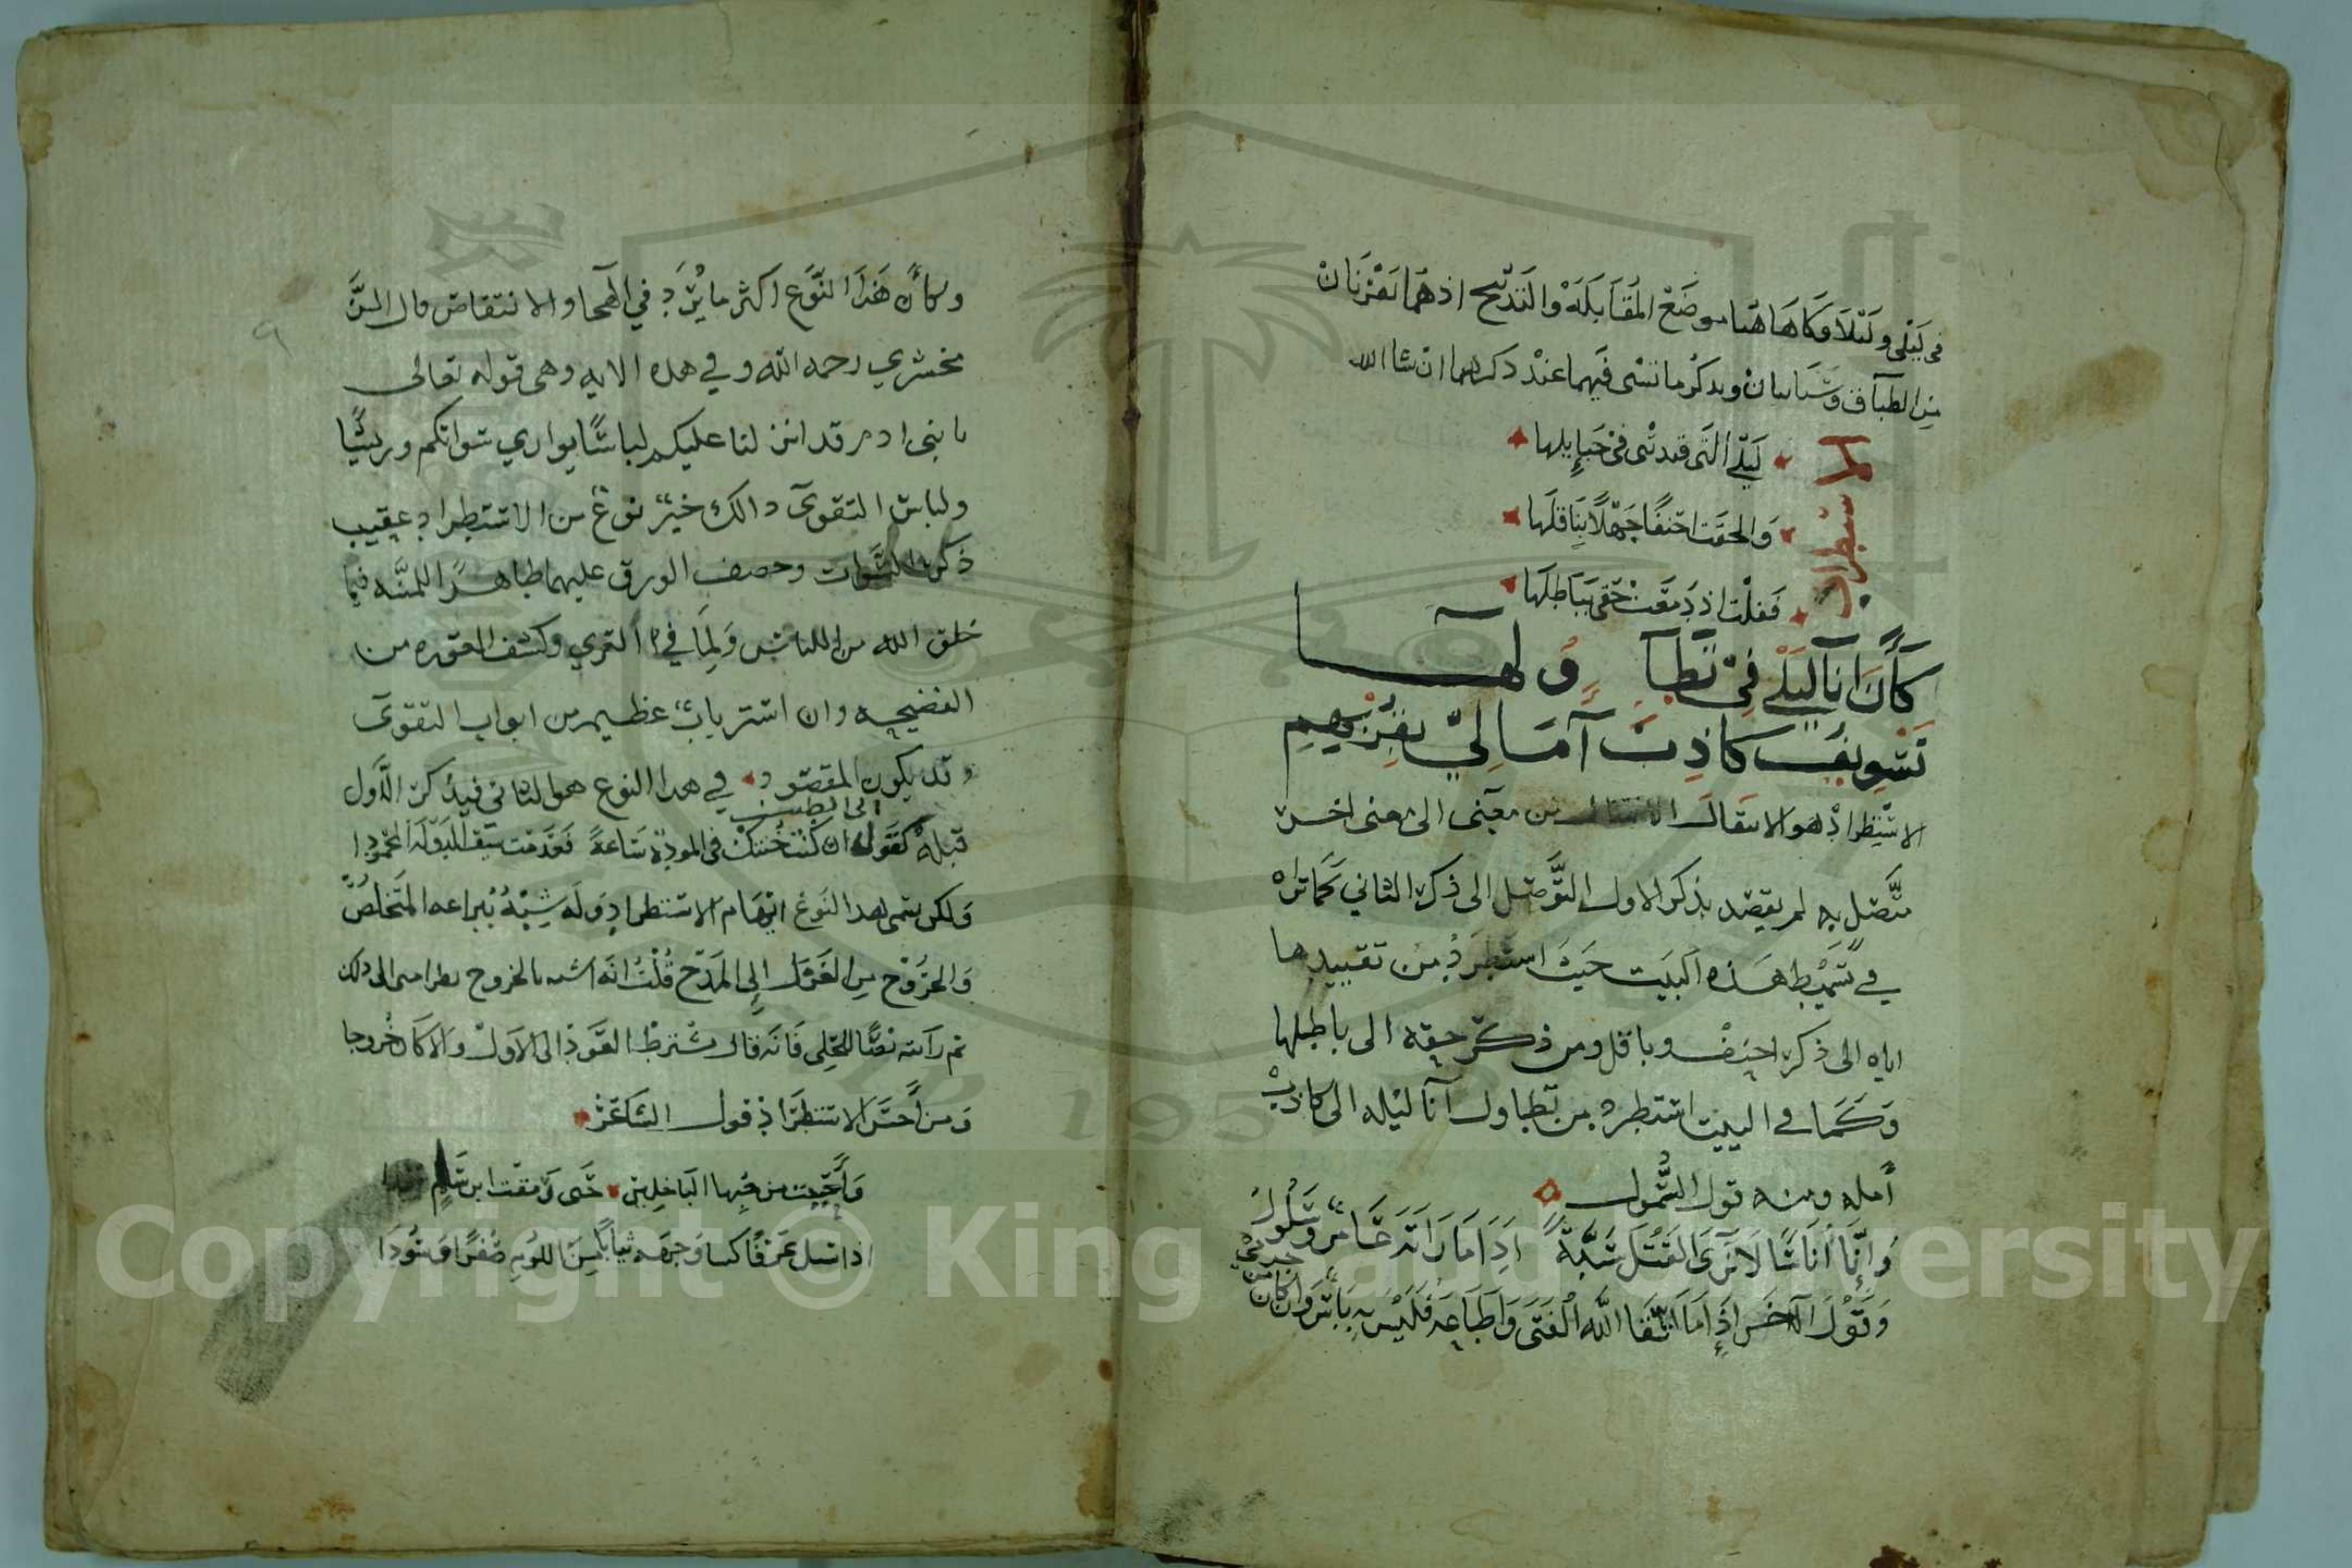 في ليلى وليلا وكاها هنا موضع المقابلة والتدبيح اذ هما يقترنان
من الطباق وسياتيان ويذكر ما تسى فيهما عند ذكرهما ان شا الله
الاستطراد
ليلى التي قيدتني في حبايلها
والحقت احنفا جهلا بناقلها
فقلت اذ دمغت حقي بباطلها
كأن انا ليلي في تطا ولها
تسويف كاذب آمالي بقربهم
الاستطراد هو الانتقال من معنى الى معنى اخر
متصل به لم يقصد بذكر الاول التوصل الى ذكر الثاني كما تراه
في تسميط هذه البيت حيث استطرد من تقييدها
اياه الى ذكر احنف وباقل ومن ذكر حقه الى باطلها
وكما في البيت استطرد من تطاول آنا ليله الى كاذب
أمله ومنه قول السمول
وإنا أناسا لا نرى القتل سبة اذا ما راته عامر وسلول
وقول الآخر إذا ما اتقا الله الفتى واطاعه فليس به باس وان كان من جرم
وكأن هذا النوع اكثر ما يرد في الهجا والانتقاص قال الز
مخشري رحمه الله وفي هذه الايه وهى قوله تعالى
يا بنى ادم قد انزلنا عليكم لباسا يواري سواتكم وريشا
ولباس التقوى ذالك خير نوع من الاستطراد عقيب
ذكر السوات وخصف الورق عليهما ظاهرا للمنه فيما
خلق الله من اللباس ولما في العري وكشف العوره من
الفضيحه وان الستر باب عظيم من ابواب التقوى
وقد يكون المقصود في هذا النوع هو الثاني فيذكر الاول
قبله كقول ابى الطيب ان كنت خنتك في المودة ساعة فذممت سيف الدولة المحمودا
ولكن يسمى هذا النوع ايهام الاستطراد وله شبه ببراعه المتخلص
والخروج من الغزل إلى المدح قلت انه اشبه بالخروج نظرا منى الى ذلك
ثم رأيته نصا للحلي فانه قال شترط العود الى الاول والا كان خروجا
ومن أحسن الاستطراد قول الشاعر
وأحببت من حبها الباخلين حتى ومقت ابن سلم سعيدا
اذا سيل عرفا كسا وجهه ثيابا من اللوم صفرا وسودا